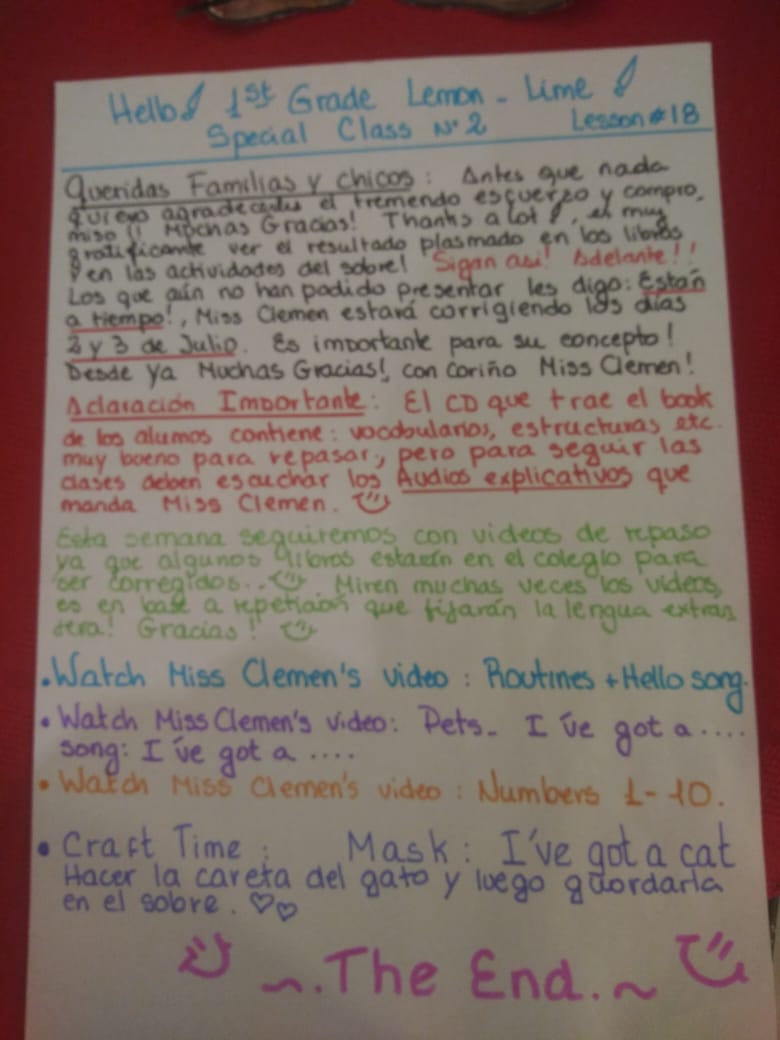 Hello! 1st Grade Lemon - Lime!
Special Class Nº 2 Lesson #18
Queridas Familias y chicos: Antes que nada
quiero agradecerles el tremendo esfuerzo y compro-
miso!! Muchas Gracias! Thanks a lot!, es muy
gratificante ver el resultado plasmado en los libros
y en las actividades del sobre! Sigan asi! Adelante!!
Los que aún no han podido presentar les digo: Están
a tiempo!, Miss Clemen estará corrigiendo los días
2 y 3 de Julio. Es importante para su concepto!
Desde ya Muchas Gracias!, con cariño Miss Clemen!
Aclaración Importante: El CD que trae el book
de los alumos contiene: vocabularios, estructuras etc.
muy bueno para repasar, pero para seguir las
clases deben escuchar los Audios explicativos que
manda Miss Clemen.
Esta semana seguiremos con videos de repaso
ya que algunos libros estarán en el colegio para
ser corregidos... Miren muchas veces los videos,
es en base a repetición que fijarán la lengua extran
jera! Gracias!
• Watch Miss Clemen's video: Routines + Hello song.
• Watch Miss Clemen's video: Pets- I've got a ....
song: I've got a ....
• Watch Miss Clemen's video: Numbers 1-10.
• Craft Time: Mask: I've got a cat
Hacer la careta del gato y luego guardarla
en el sobre.
~.The End.~